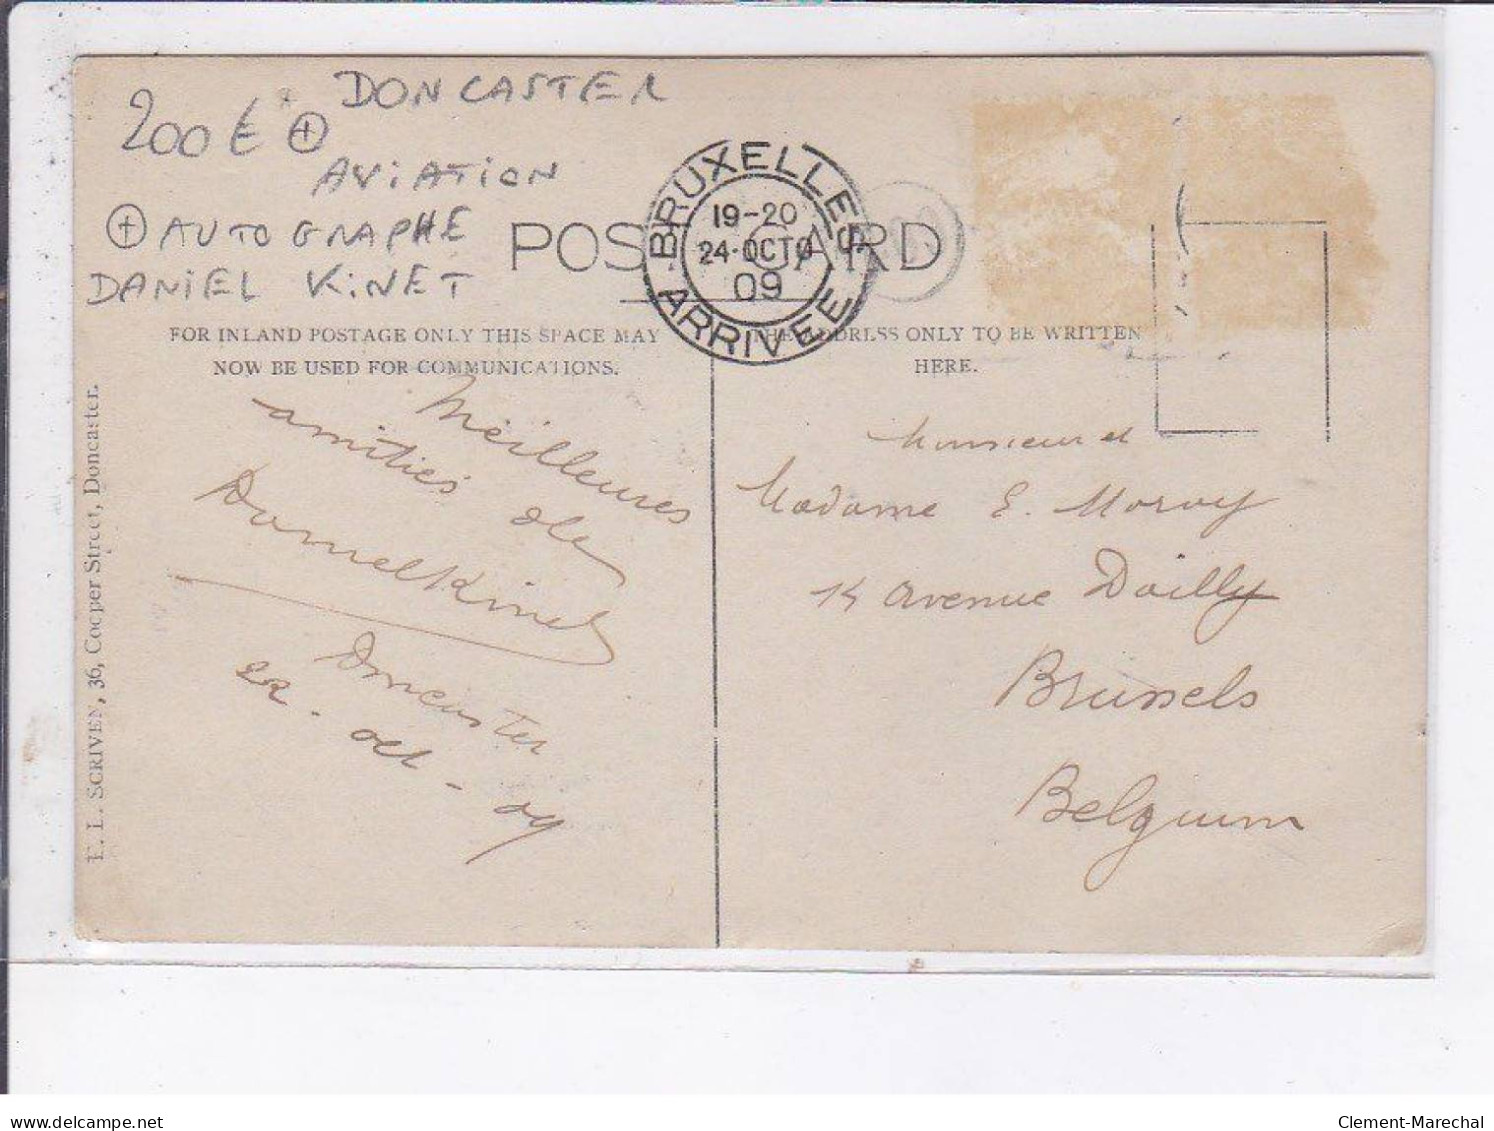 DONCASTER
200€ +
AViATiON
+ AUTOGRAPHE
DANiEL KiNET
POST CARD
BRUXELLES
19-20
24·OCTO
09
ARRIVEE
FOR INLAND POSTAGE ONLY THIS SPACE MAY
NOW BE USED FOR COMMUNICATIONS.
THE ADDRESS ONLY TO BE WRITTEN
HERE.
E. L. SCRIVEN, 36, Cooper Street, Doncaster.
Meilleures
amitiés de
Daniel Kinet
Doncaster
22 - oct - 09
Monsieur et
Madame E. Morvoy
14 avenue Dailly
Brussels
Belgium
delcampe.net
Clement-Marechal